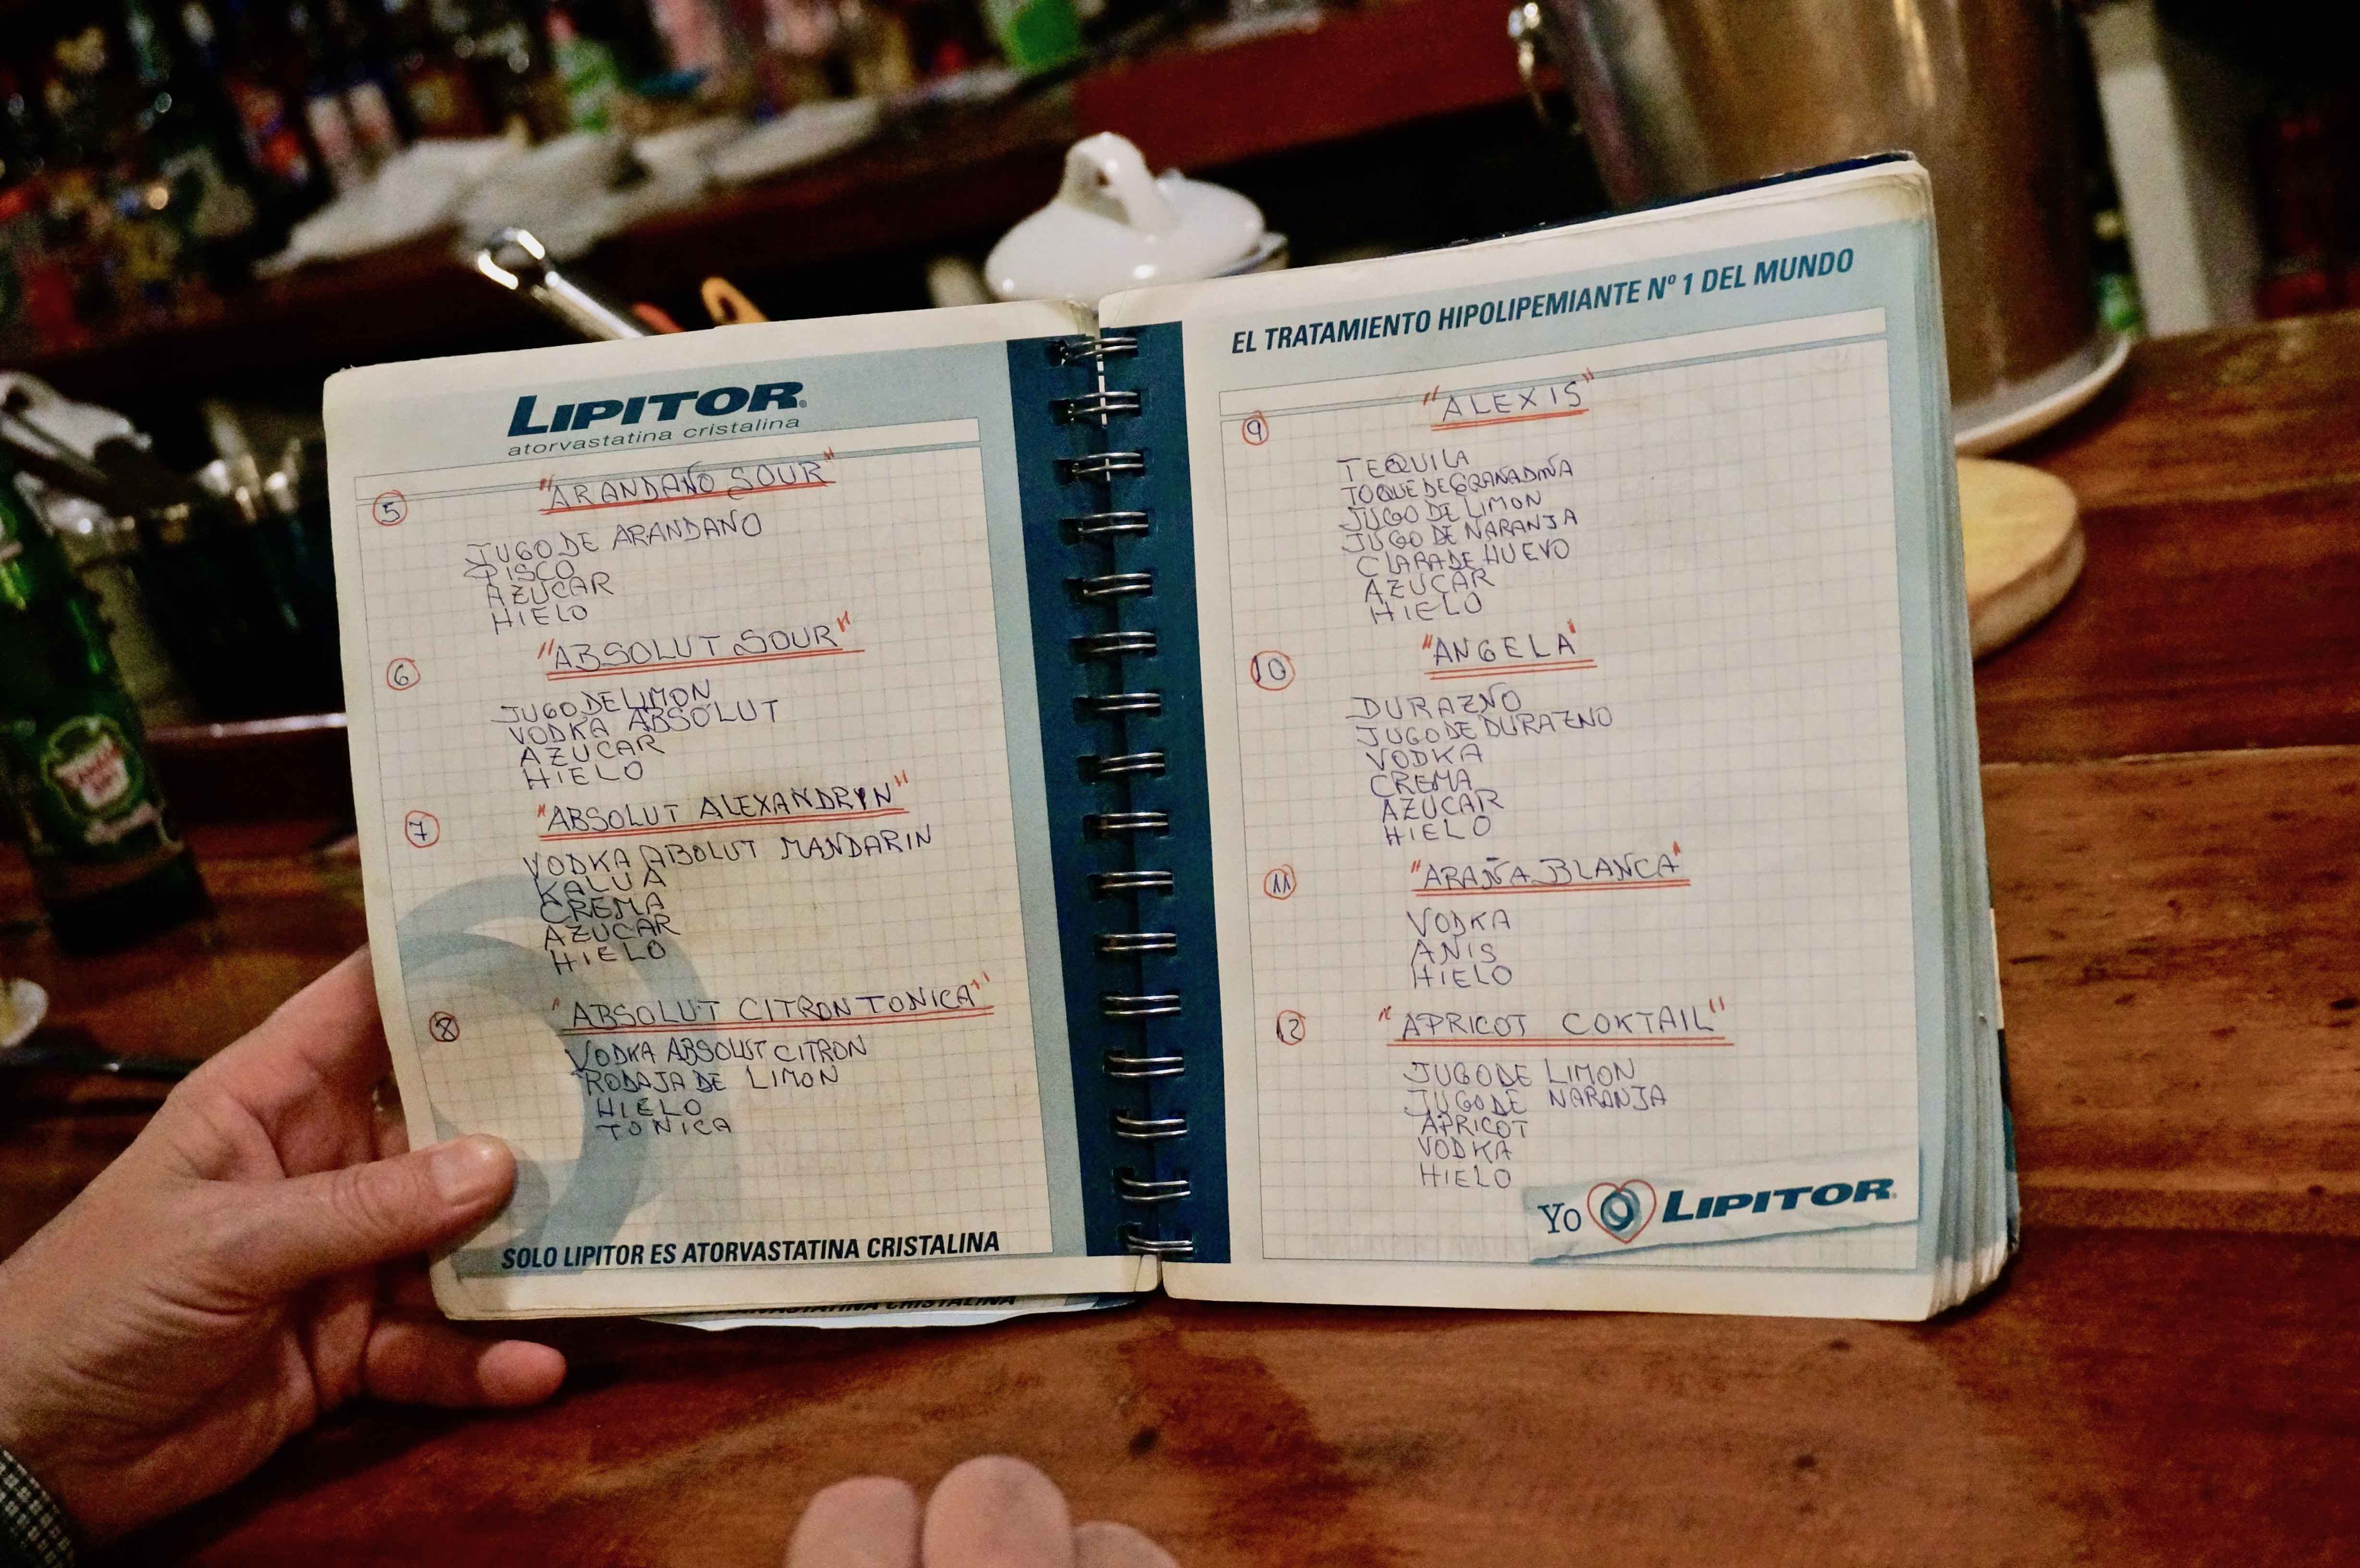 LIPITOR®
atorvastatina cristalina
5
"ARANDAÑO SOUR"
JUGO DE ARANDANO
PISCO
AZUCAR
HIELO
6
"ABSOLUT SOUR"
JUGO DE LIMON
VODKA ABSOLUT
AZUCAR
HIELO
7
"ABSOLUT ALEXANDRIN"
VODKA ABOLUT MANDARIN
KALUA
CREMA
AZUCAR
HIELO
8
"ABSOLUT CITRON TONICA"
VODKA ABSOLUT CITRON
RODAJA DE LIMON
HIELO
TONICA
SOLO LIPITOR ES ATORVASTATINA CRISTALINA
ATORVASTATINA CRISTALINA
EL TRATAMIENTO HIPOLIPEMIANTE Nº 1 DEL MUNDO
9
"ALEXIS"
TEQUILA
TOQUE DE GRANADINA
JUGO DE LIMON
JUGO DE NARANJA
CLARA DE HUEVO
AZUCAR
HIELO
10
"ANGELA"
DURAZNO
JUGO DE DURAZNO
VODKA
CREMA
AZUCAR
HIELO
11
"ARAÑA BLANCA"
VODKA
ANIS
HIELO
12
"APRICOT COKTAIL"
JUGO DE LIMON
JUGO DE NARANJA
APRICOT
VODKA
HIELO
Yo LIPITOR®